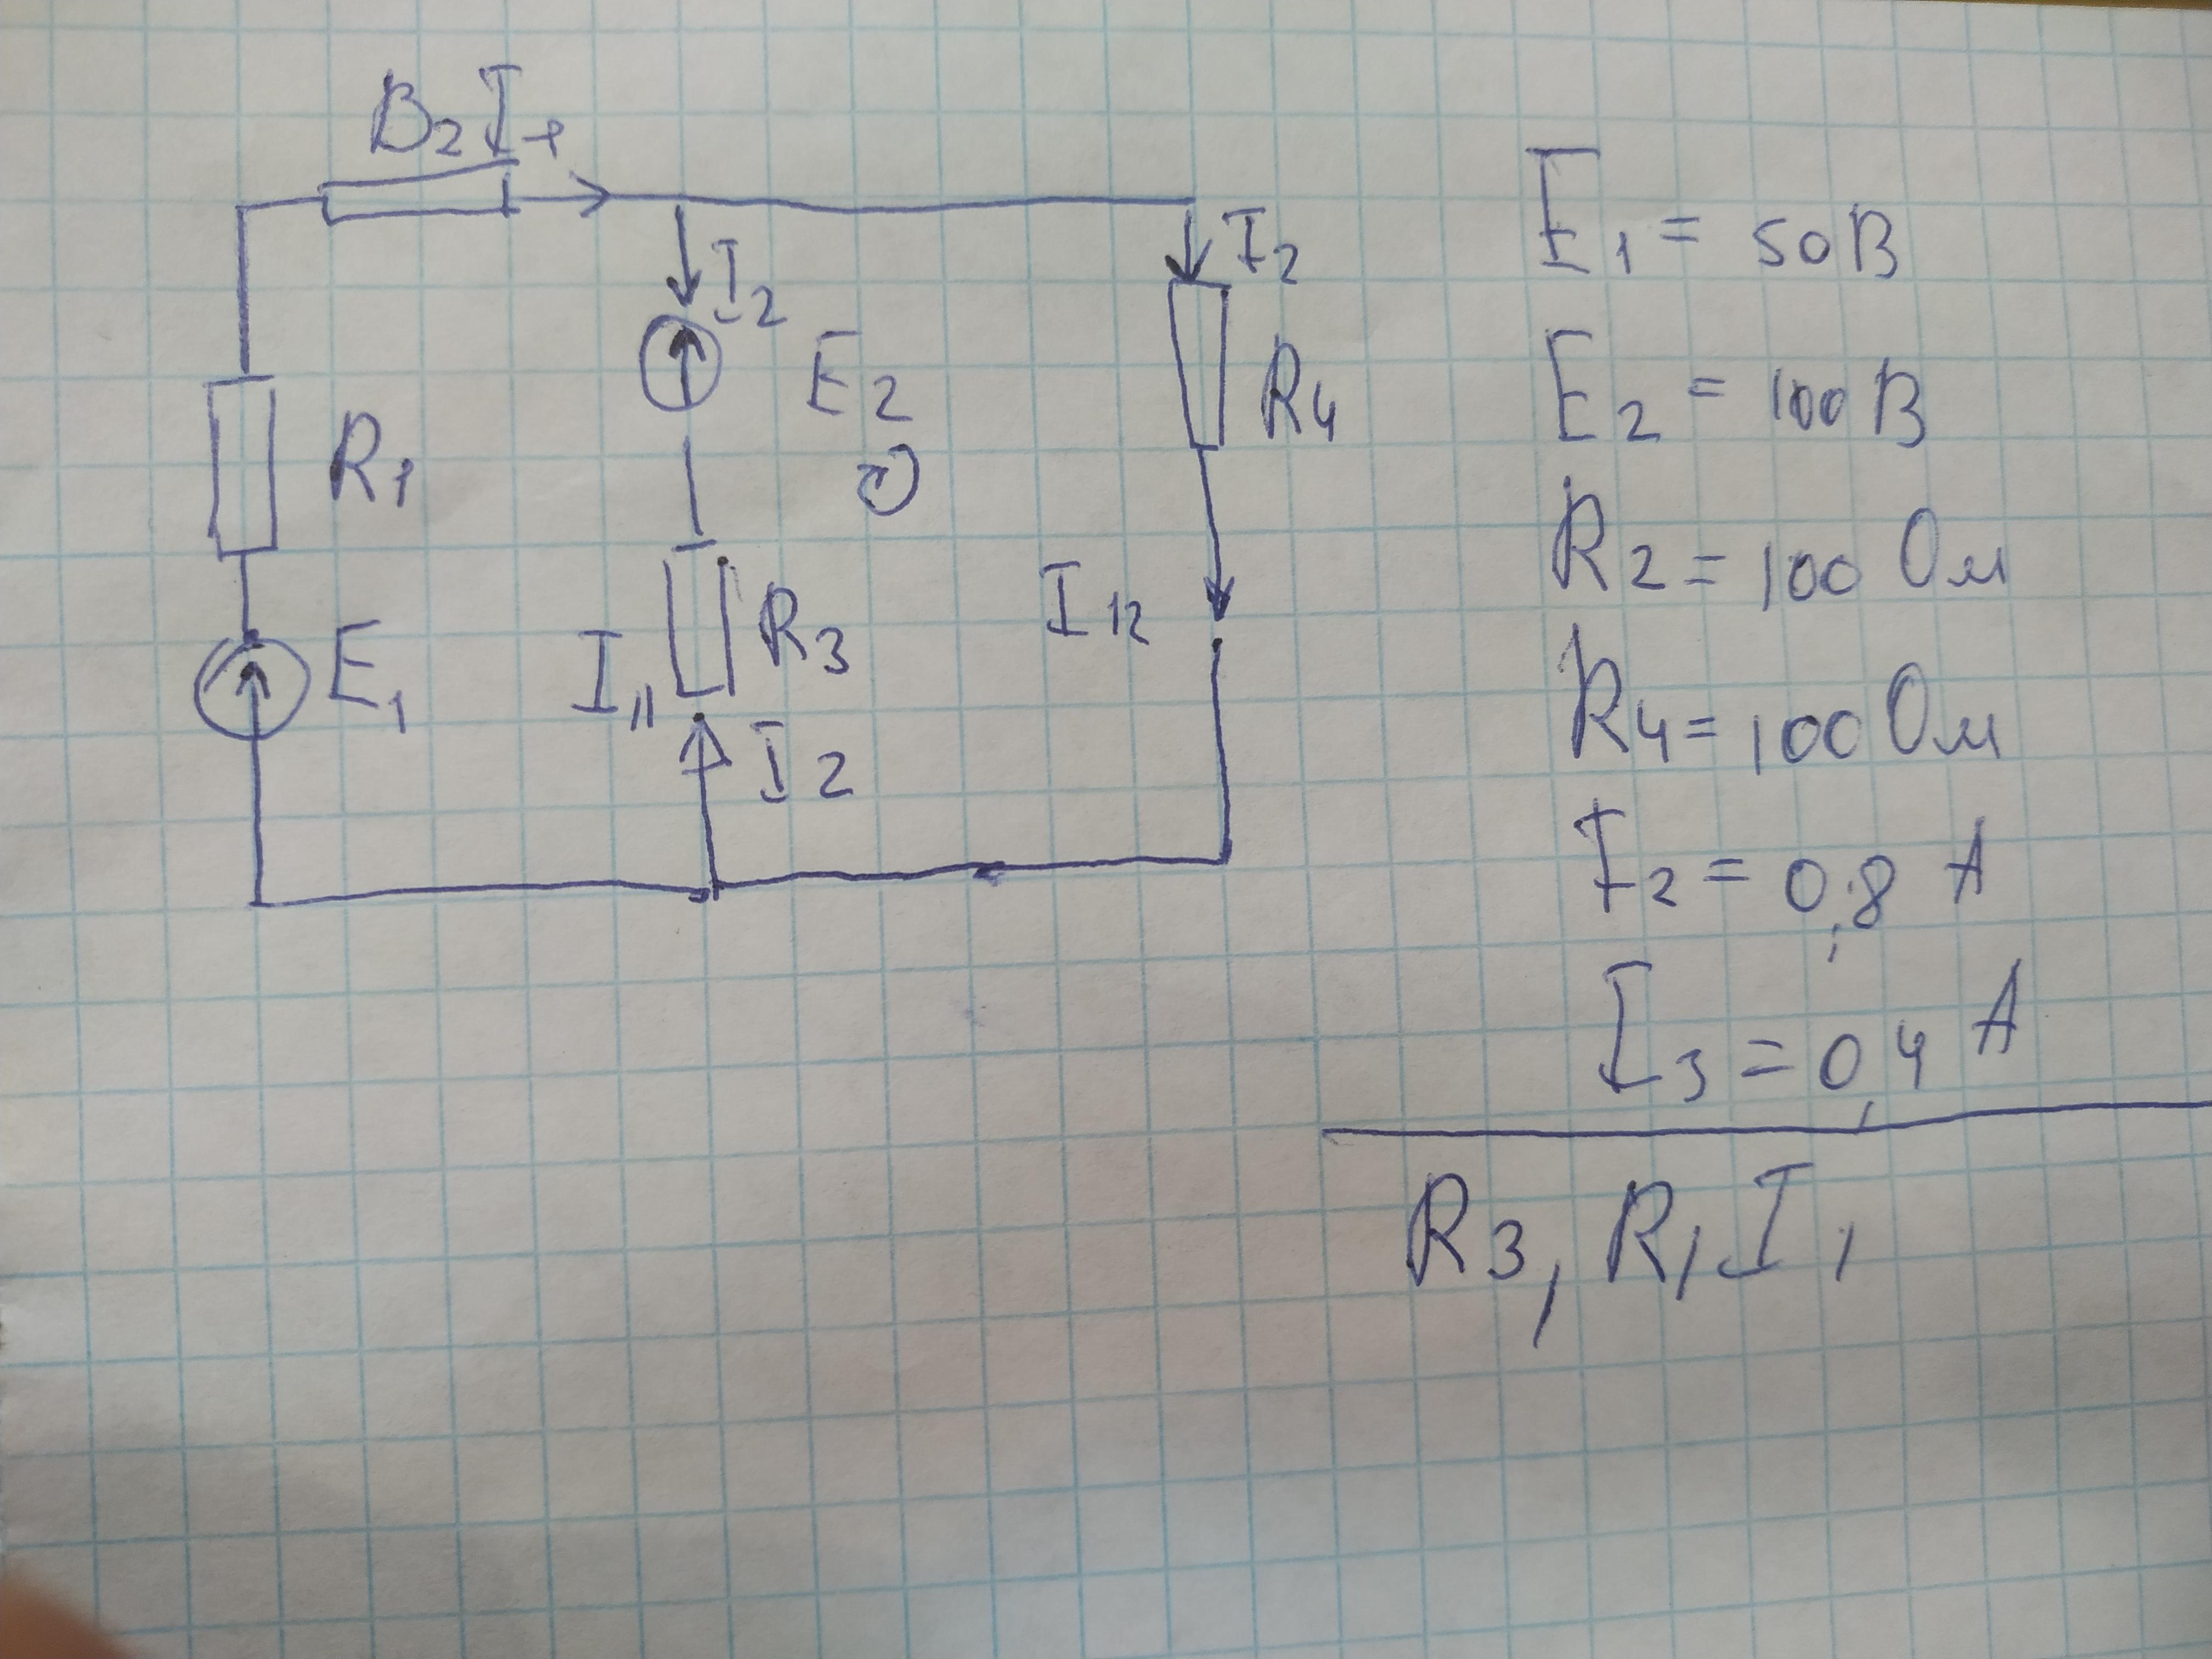 B2 I1
I2
I2
E2
R4
R1
R3
I12
E1
I11
I2
E1 = 50В
E2 = 100В
R2 = 100 Ом
R4 = 100 Ом
I2 = 0,8 А
I3 = 0,4 А
R3, R1 I1